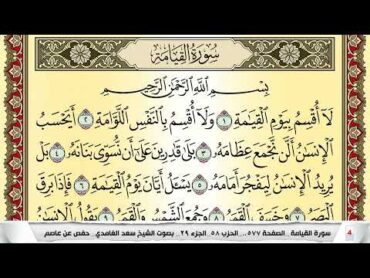 سُورَةُ القِيَامَةِ
بِسْمِ اللَّهِ الرَّحْمَٰنِ الرَّحِيمِ
لَا أُقْسِمُ بِيَوْمِ الْقِيَامَةِ ١ وَلَا أُقْسِمُ بِالنَّفْسِ اللَّوَّامَةِ ٢ أَيَحْسَبُ
الْإِنسَانُ أَلَّن نَّجْمَعَ عِظَامَهُ ٣ بَلَىٰ قَادِرِينَ عَلَىٰ أَن نُّسَوِّيَ بَنَانَهُ ٤ بَلْ
يُرِيدُ الْإِنسَانُ لِيَفْجُرَ أَمَامَهُ ٥ يَسْأَلُ أَيَّانَ يَوْمُ الْقِيَامَةِ ٦ فَإِذَا بَرِقَ
الْبَصَرُ ٧ وَخَسَفَ الْقَمَرُ ٨ وَجُمِعَ الشَّمْسُ وَالْقَمَرُ ٩ يَقُولُ الْإِنسَانُ
سورة القيامة .. الصفحة ٥٧٧ .. الحزب ٥٨ .. الجزء ٢٩ .. بصوت الشيخ سعد الغامدي .. حفص عن عاصم